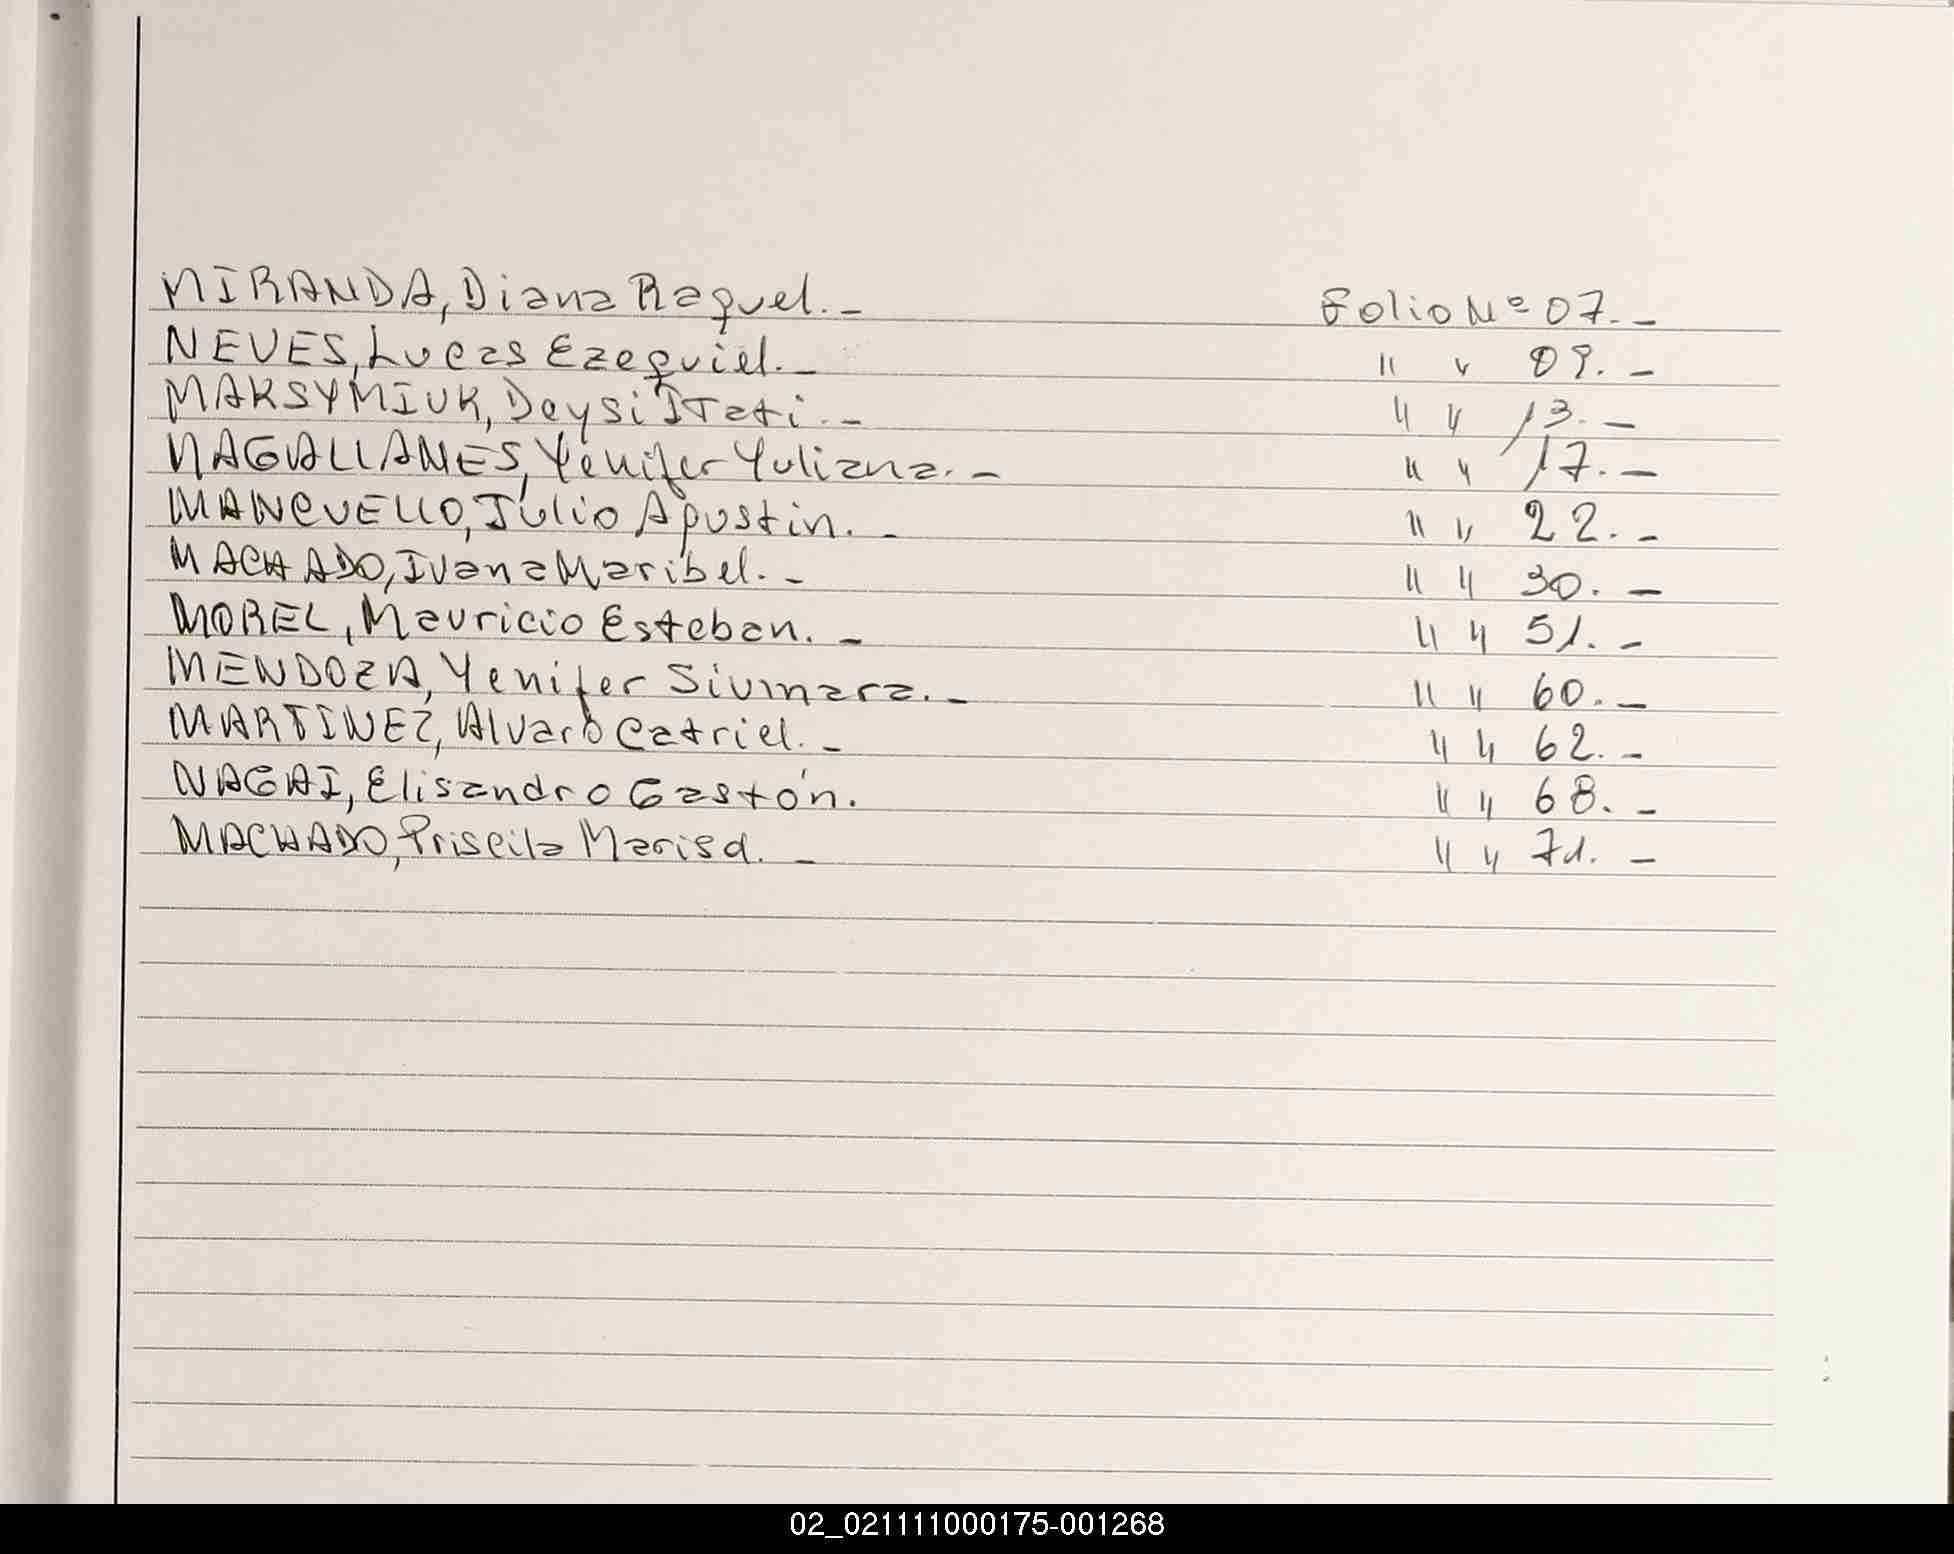 MIRANDA, Diana Raquel.- Folio Nº 07.-
NEVES, Lucas Ezequiel.- " " 09.-
MAKSYMIUK, Deysi ITati.- " " 13.-
MAGALLANES, Yenifer Yuliana.- " " 17.-
MANCUELLO, Júlio Agustin.- " " 22.-
MACHADO, Ivana Maribel.- " " 30.-
MOREL, Mauricio Esteban.- " " 51.-
MENDOZA, Yenifer Siumara.- " " 60.-
MARTINEZ, Alvaro Catriel.- " " 62.-
NAGAI, Elisandro Gastón. " " 68.-
MACHADO, Priscila Marisa.- " " 71.-
02_021111000175-001268